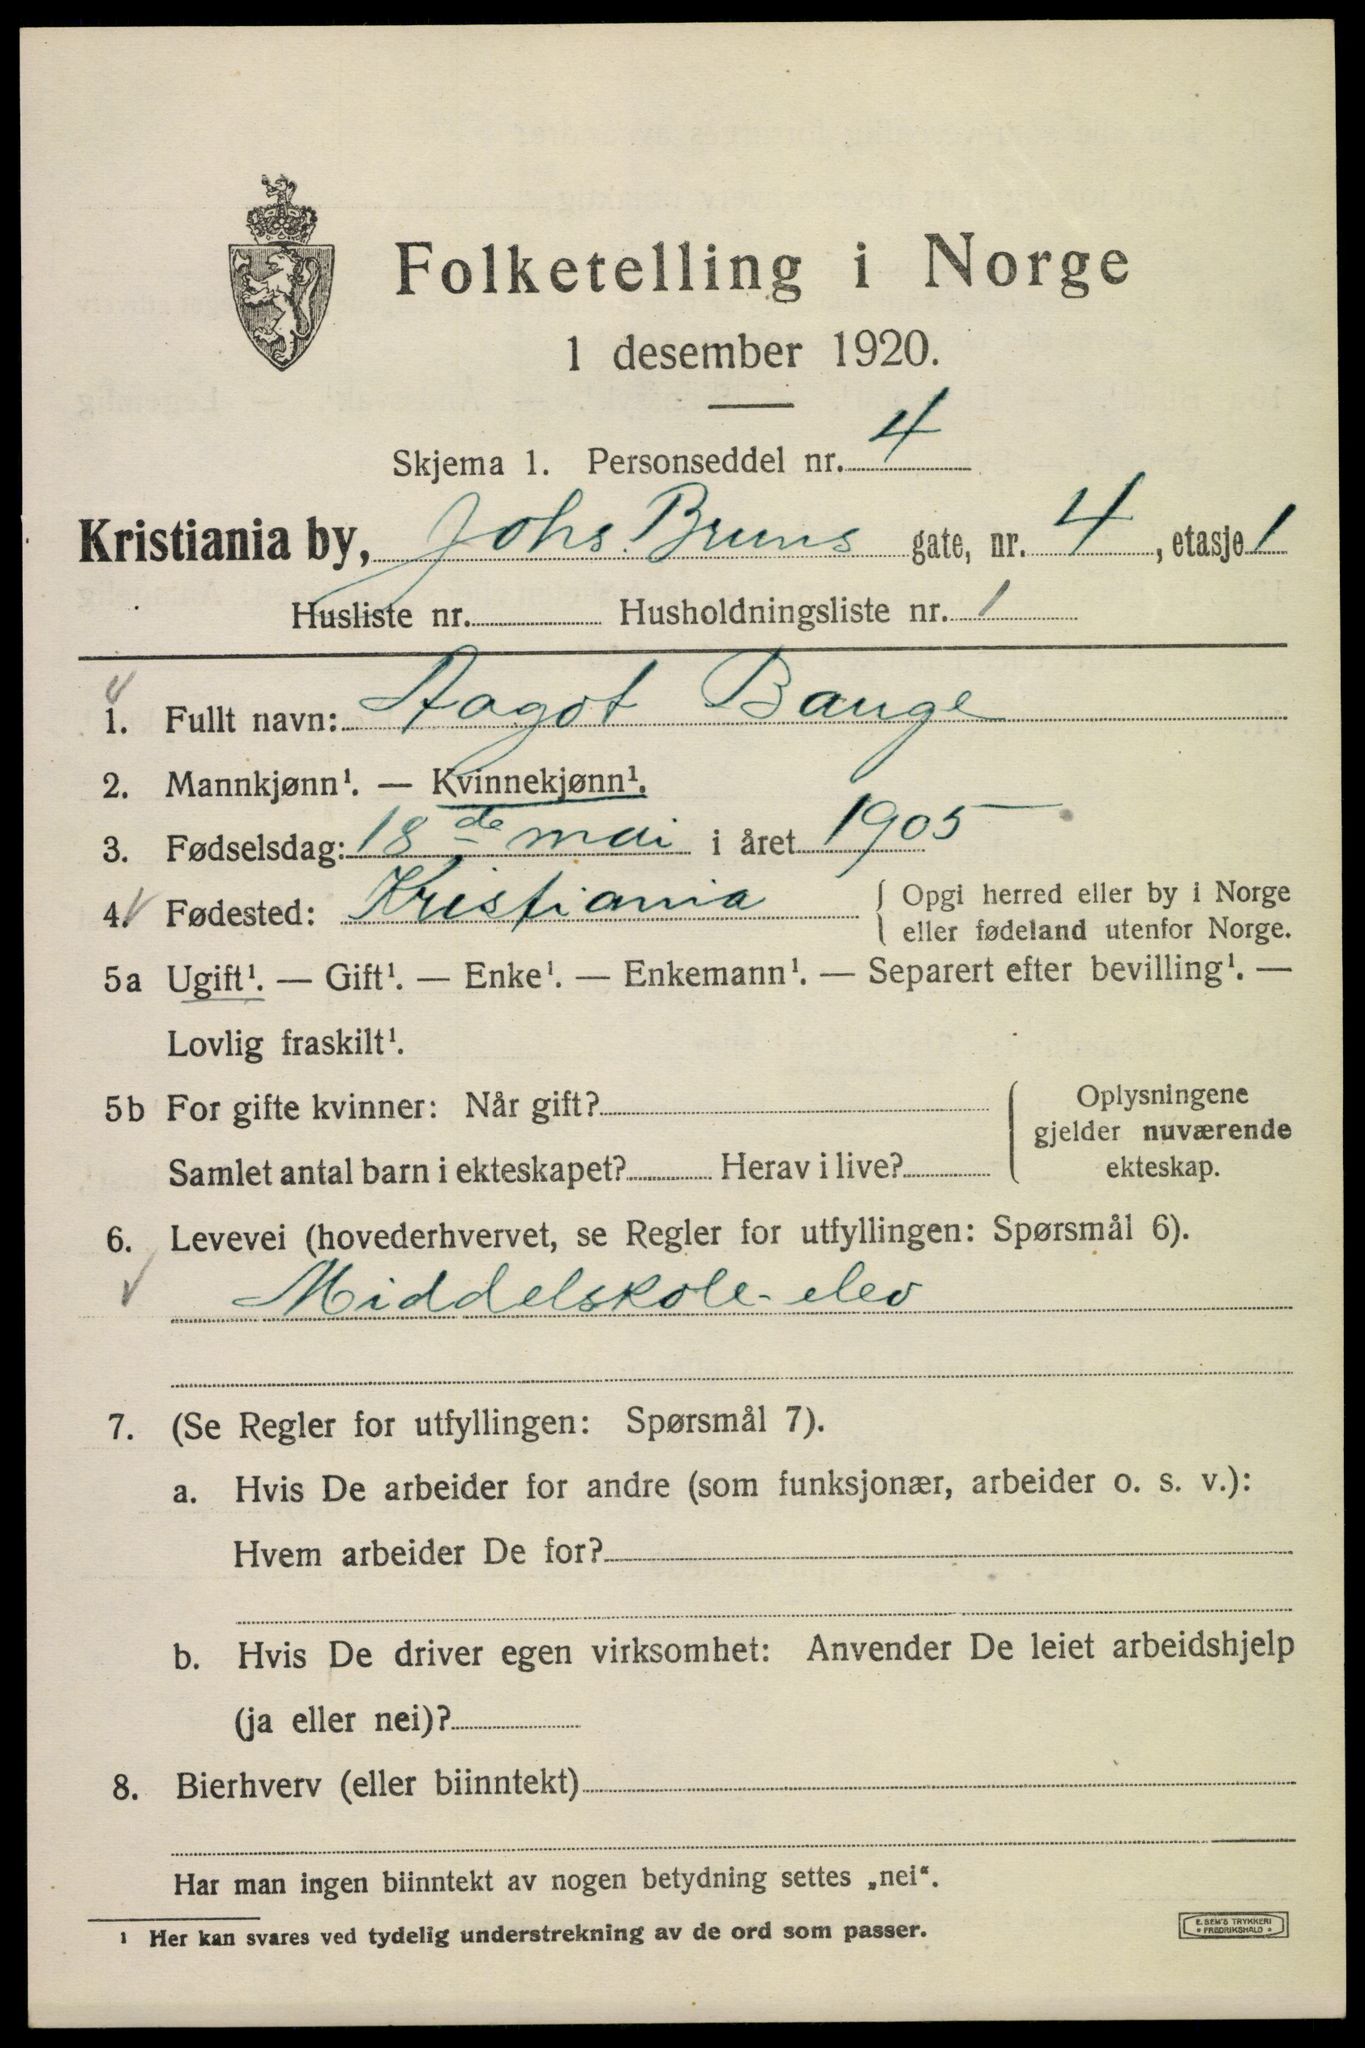 Folketelling i Norge
1 desember 1920.
Skjema 1. Personseddel nr. 4
Kristiania by, Johs. Bruns gate, nr. 4, etasje 1
Husliste nr. Husholdningsliste nr. 1
1. Fullt navn: Aagot Bauge
2. Mannkjønn¹. — Kvinnekjønn¹.
3. Fødselsdag: 18de mai i året 1905
4. Fødested: Kristiania { Opgi herred eller by i Norge
eller fødeland utenfor Norge.
5a Ugift¹. — Gift¹. — Enke¹. — Enkemann¹. — Separert efter bevilling¹. —
Lovlig fraskilt¹.
5b For gifte kvinner: Når gift? Oplysningene
gjelder nuværende
Samlet antal barn i ekteskapet? Herav i live? ekteskap.
6. Levevei (hovederhvervet, se Regler for utfyllingen: Spørsmål 6).
Middelskole-elev
7. (Se Regler for utfyllingen: Spørsmål 7).
a. Hvis De arbeider for andre (som funksjonær, arbeider o. s. v.):
Hvem arbeider De for?
b. Hvis De driver egen virksomhet: Anvender De leiet arbeidshjelp
(ja eller nei)?
8. Bierhverv (eller biinntekt)
Har man ingen biinntekt av nogen betydning settes „nei“.
¹ Her kan svares ved tydelig understrekning av de ord som passer.
E. SEM'S TRYKKERI
FREDRIKSHALD